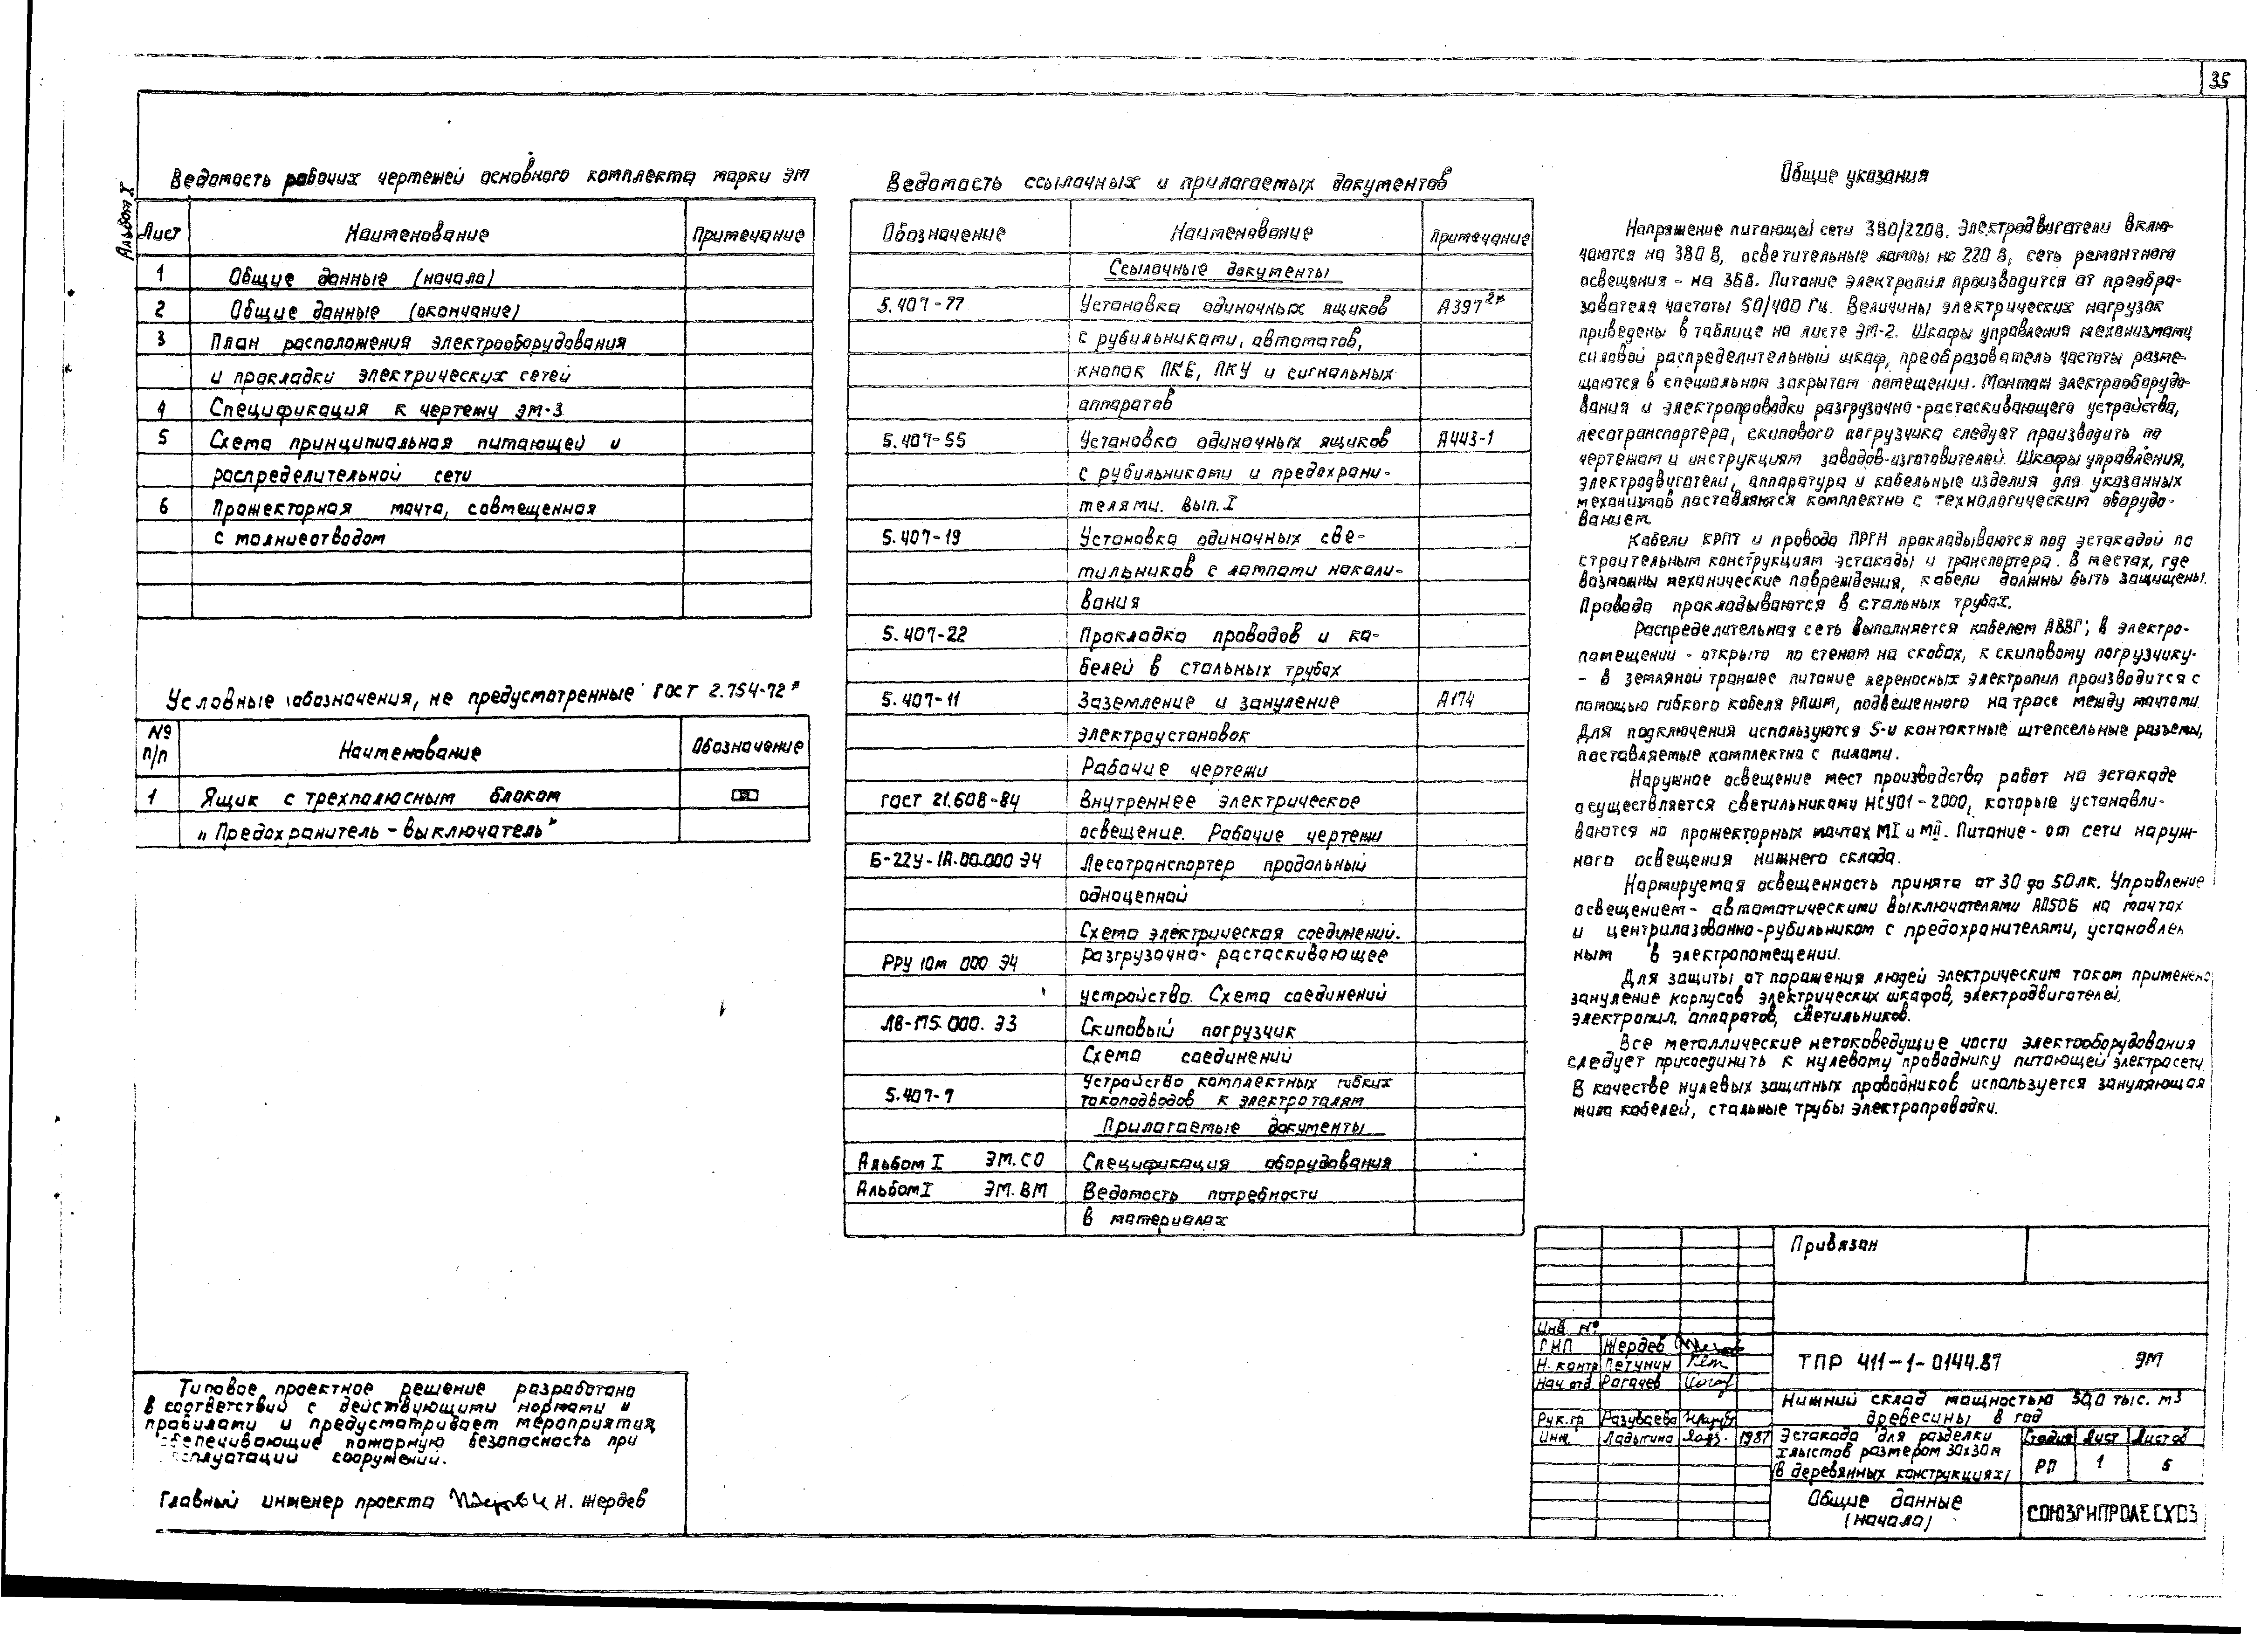 35
Альбом X
Ведомость рабочих чертежей основного комплекта марки ЭМ
Лист Наименование Примечание
1 Общие данные (начало)
2 Общие данные (окончание)
3 План расположения электрооборудования
и прокладки электрических сетей
4 Спецификация к чертежу ЭМ-3
5 Схема принципиальная питающей и
распределительной сети
6 Прожекторная мачта, совмещенная
с молниеотводом
Условные обозначения, не предусмотренные ГОСТ 2.754-72*
№ п/п Наименование Обозначение
1 Ящик с трехполюсным блоком
„Предохранитель-выключатель"
Типовое проектное решение разработано
в соответствии с действующими нормами и
правилами и предусматривает мероприятия,
обеспечивающие пожарную безопасность при
эксплуатации сооружений.
Главный инженер проекта И.Н. Жердев
Ведомость ссылочных и прилагаемых документов
Обозначение Наименование Примечание
Ссылочные документы
5.407-77 Установка одиночных ящиков А397
с рубильниками, автоматов,
кнопок ПКЕ, ПКУ и сигнальных
аппаратов
5.407-55 Установка одиночных ящиков А443-1
с рубильниками и предохрани-
телями. Вып. I
5.407-19 Установка одиночных све-
тильников с лампами накали-
вания
5.407-22 Прокладка проводов и ка-
белей в стальных трубах
5.407-11 Заземление и зануление А174
электроустановок
Рабочие чертежи
ГОСТ 21.608-84 Внутреннее электрическое
освещение. Рабочие чертежи
Б-22У-1А.00.000 Э4 Лесотранспортер продольный
одноцепной
Схема электрическая соединений.
РРУ 10м 000 Э4 Разгрузочно-растаскивающее
устройство. Схема соединений
ЛВ-175.000.Э3 Скиповый погрузчик
Схема соединений
5.407-7 Устройство комплектных гибких
токоподводов к электроталям
Прилагаемые документы
Альбом I ЭМ.СО Спецификация оборудования
Альбом I ЭМ.ВМ Ведомость потребности
в материалах
Общие указания
Напряжение питающей сети 380/220В. Электродвигатели вклю-
чаются на 380 В, осветительные лампы на 220 В, сеть ремонтного
освещения - на 36В. Питание электропил производится от преобра-
зователя частоты 50/400 Гц. Величины электрических нагрузок
приведены в таблице на листе ЭМ-2. Шкафы управления механизмами,
силовой распределительный шкаф, преобразователь частоты разме-
щаются в специальном закрытом помещении. Монтаж электрооборудо-
вания и электропроводки разгрузочно-растаскивающего устройства,
лесотранспортера, скипового погрузчика следует производить по
чертежам и инструкциям заводов-изготовителей. Шкафы управления,
электродвигатели, аппаратура и кабельные изделия для указанных
механизмов поставляются комплектно с технологическим оборудо-
ванием.
Кабели КРПТ и провода ПРГН прокладываются под эстакадой по
строительным конструкциям эстакады и транспортера. В местах, где
возможны механические повреждения, кабели должны быть защищены.
Провода прокладываются в стальных трубах.
Распределительная сеть выполняется кабелем АВВГ; в электро-
помещении - открыто по стенам на скобах, к скиповому погрузчику-
- в земляной траншее питание переносных электропил производится с
помощью гибкого кабеля РПШМ, подвешенного на трасе между мачтами.
Для подключения используются 5-и контактные штепсельные разъемы,
поставляемые комплектно с пилами.
Наружное освещение мест производства работ на эстакаде
осуществляется светильниками НСУ01-2000, которые устанавли-
ваются на прожекторных мачтах МI и МII. Питание - от сети наруж-
ного освещения нижнего склада.
Нормируемая освещенность принята от 30 до 50лк. Управление
освещением - автоматическими выключателями АП50Б на мачтах
и центрилазованно-рубильником с предохранителями, установлен
ным в электропомещении.
Для защиты от поражения людей электрическим током применено
зануление корпусов электрических шкафов, электродвигателей,
электропил, аппаратов, светильников.
Все металлические нетоковедущие части электрооборудования
следует присоединить к нулевому проводнику питающей электросети.
В качестве нулевых защитных проводников используется зануляющая
жила кабелей, стальные трубы электропроводки.
Привязан
Инв №
ГИП Жердев
Н. контр Петунин
Нач отд Рогачев
Рук.гр Разуваева
Инж. Ладыгина 1987
ТПР 411-1-0144.87 ЭМ
Нижний склад мощностью 50,0 тыс. м3
древесины в год
Эстакада для разделки
хлыстов размером 30х30м
(в деревянных конструкциях)
Стадия Лист Листов
РП 1 6
Общие данные
(начало)
СОЮЗГИПРОЛЕСХОЗ